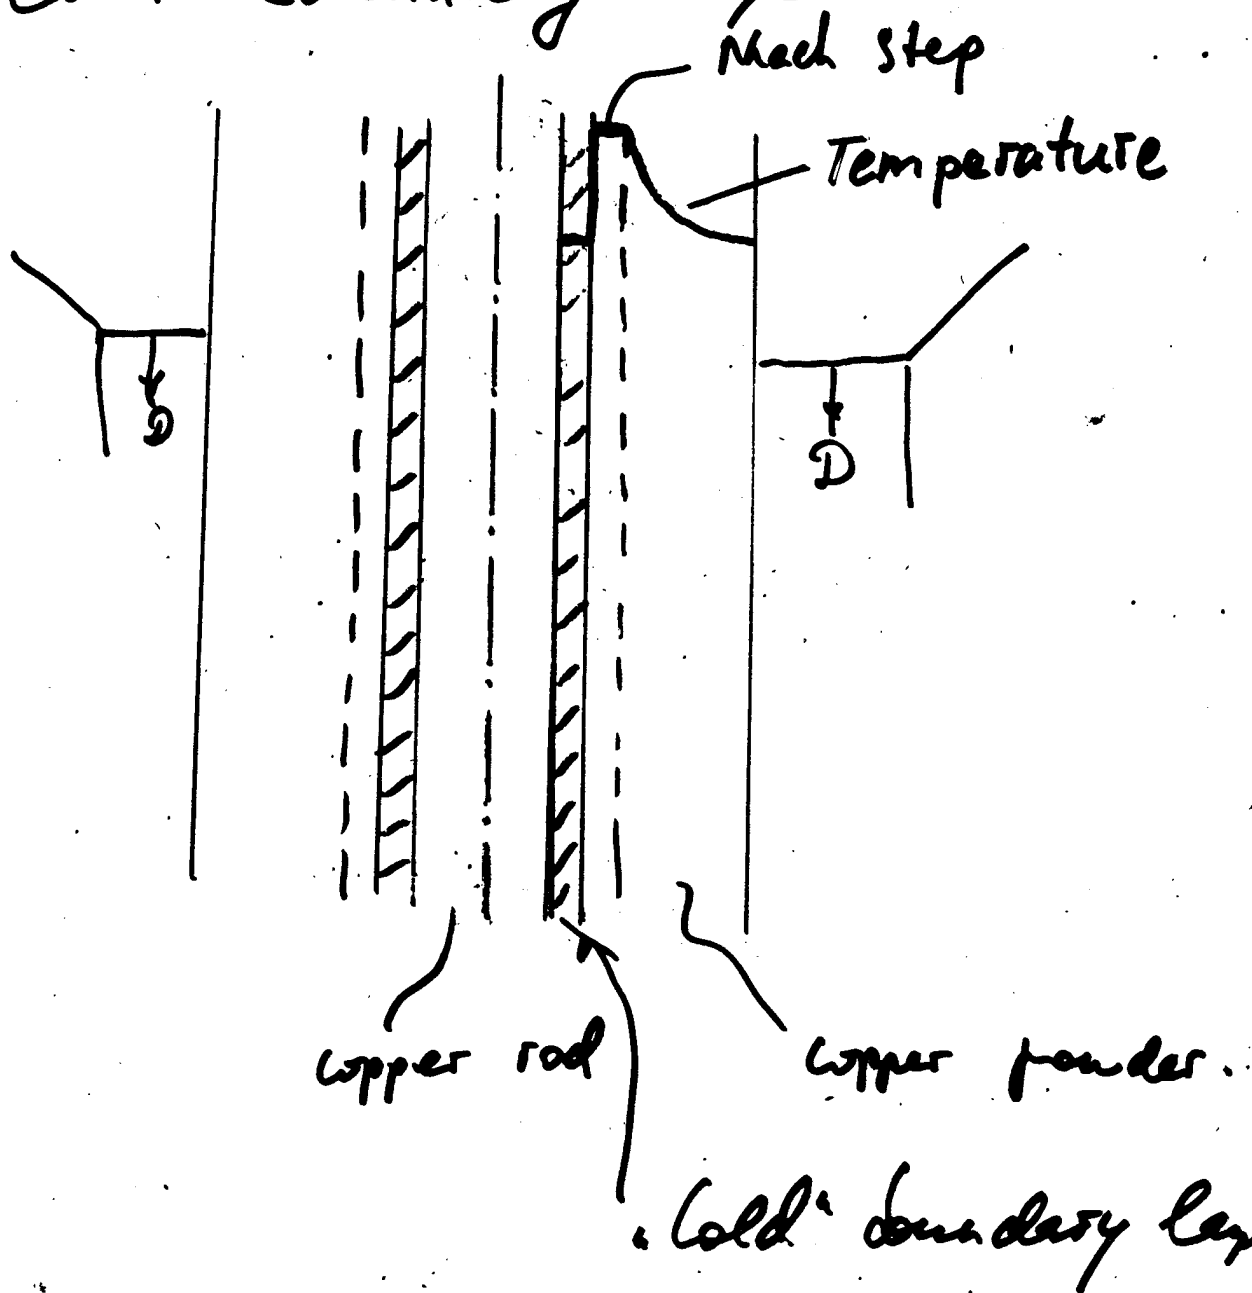 Mach step
Temperature
D
D
copper rod
copper powder.
"Cold" boundary